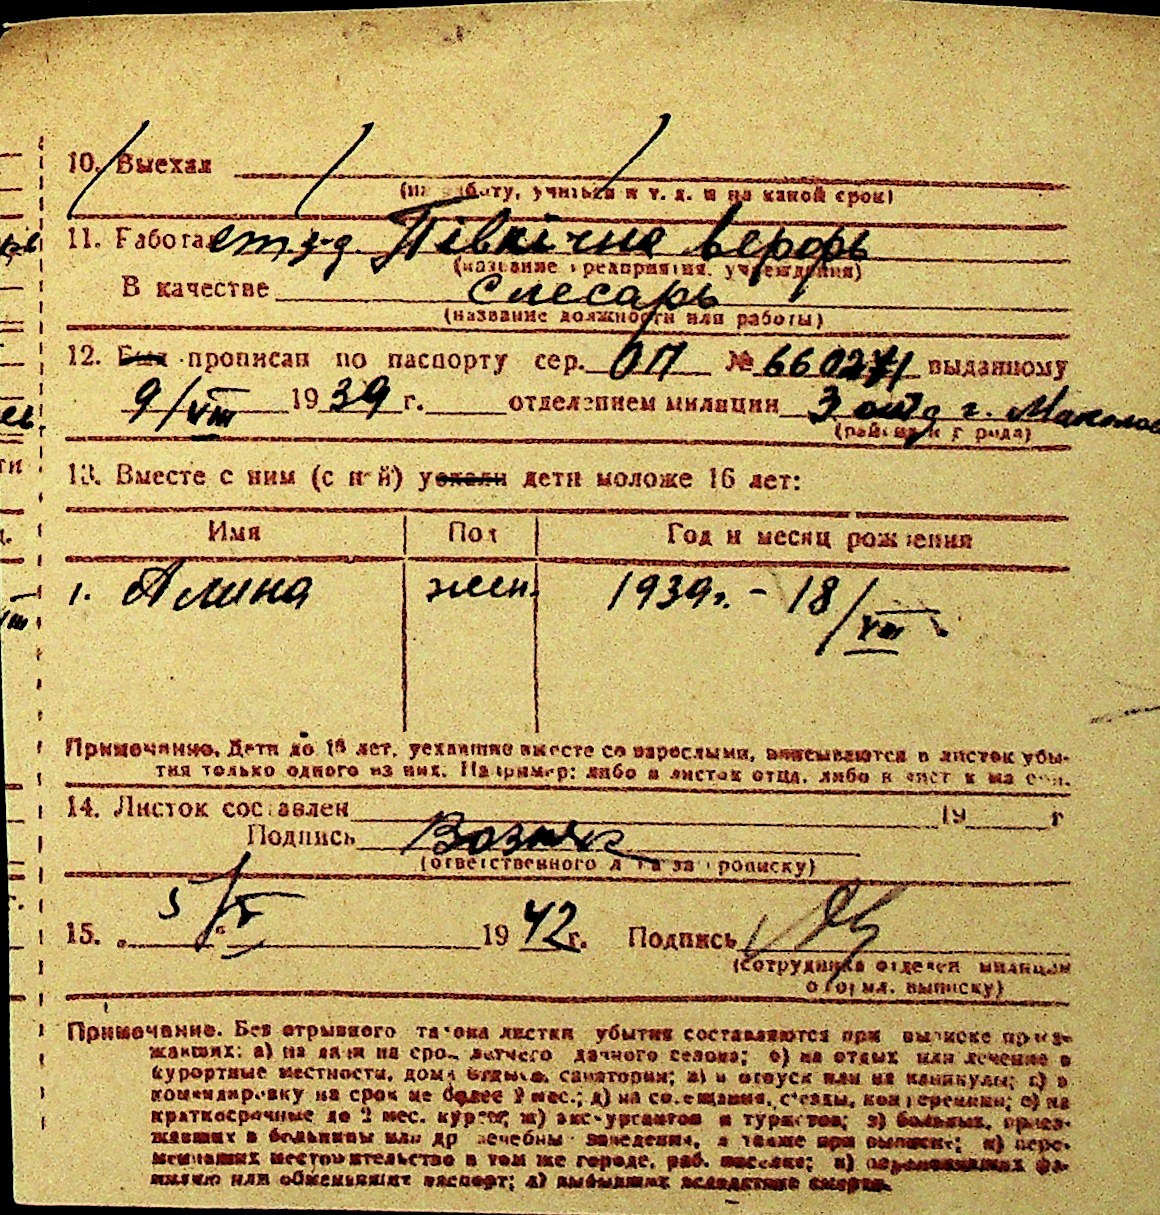 10. Выехал
(на работу, учиться и т. д. и на какой срок)
11. Работал ст. з-д. Північна верфь
(название предприятия, учреждения)
В качестве слесарь
(название должности или работы)
12. Был прописан по паспорту сер. ОП № 660271 выданному
9/VIII 1939 г. отделением милиции 3 отд г.
(район и города)
13. Вместе с ним (с ней) уехали дети моложе 16 лет:
Имя Пол Год и месяц рождения
1. Алина жен. 1939г. - 18/VIII
Примечание. Дети до 16 лет, уехавшие вместе со взрослыми, вписываются в листок убы-
тия только одного из них. Например: либо в листок отца, либо в лист к матери.
14. Листок составлен 19 г
Подпись Возняк
(ответственного лица за прописку)
15. „5“ V 1942 г. Подпись
(сотрудника отделен милиции
оформл. выписку)
Примечание. Без отрывного талона листки убытия составляются при выписке приез-
жавших: а) на дачи на срок летнего дачного сезона; б) на отдых или лечение в
курортные местности, дома отдыха, санатории; в) в отпуск или на каникулы; г) в
командировку на срок не более 2 мес.; д) на совещания, съезды, конференции; е) на
краткосрочные до 2 мес. курсы; ж) экскурсантов и туристов; з) больных, приез-
жавших в больницы или др лечебны заведения, а также при выписке; и) пере-
менивших местожительство в том же городе, раб. поселке; к) переменивших фа-
милию или обменявших паспорт; л) выбывших вследствие смерти.